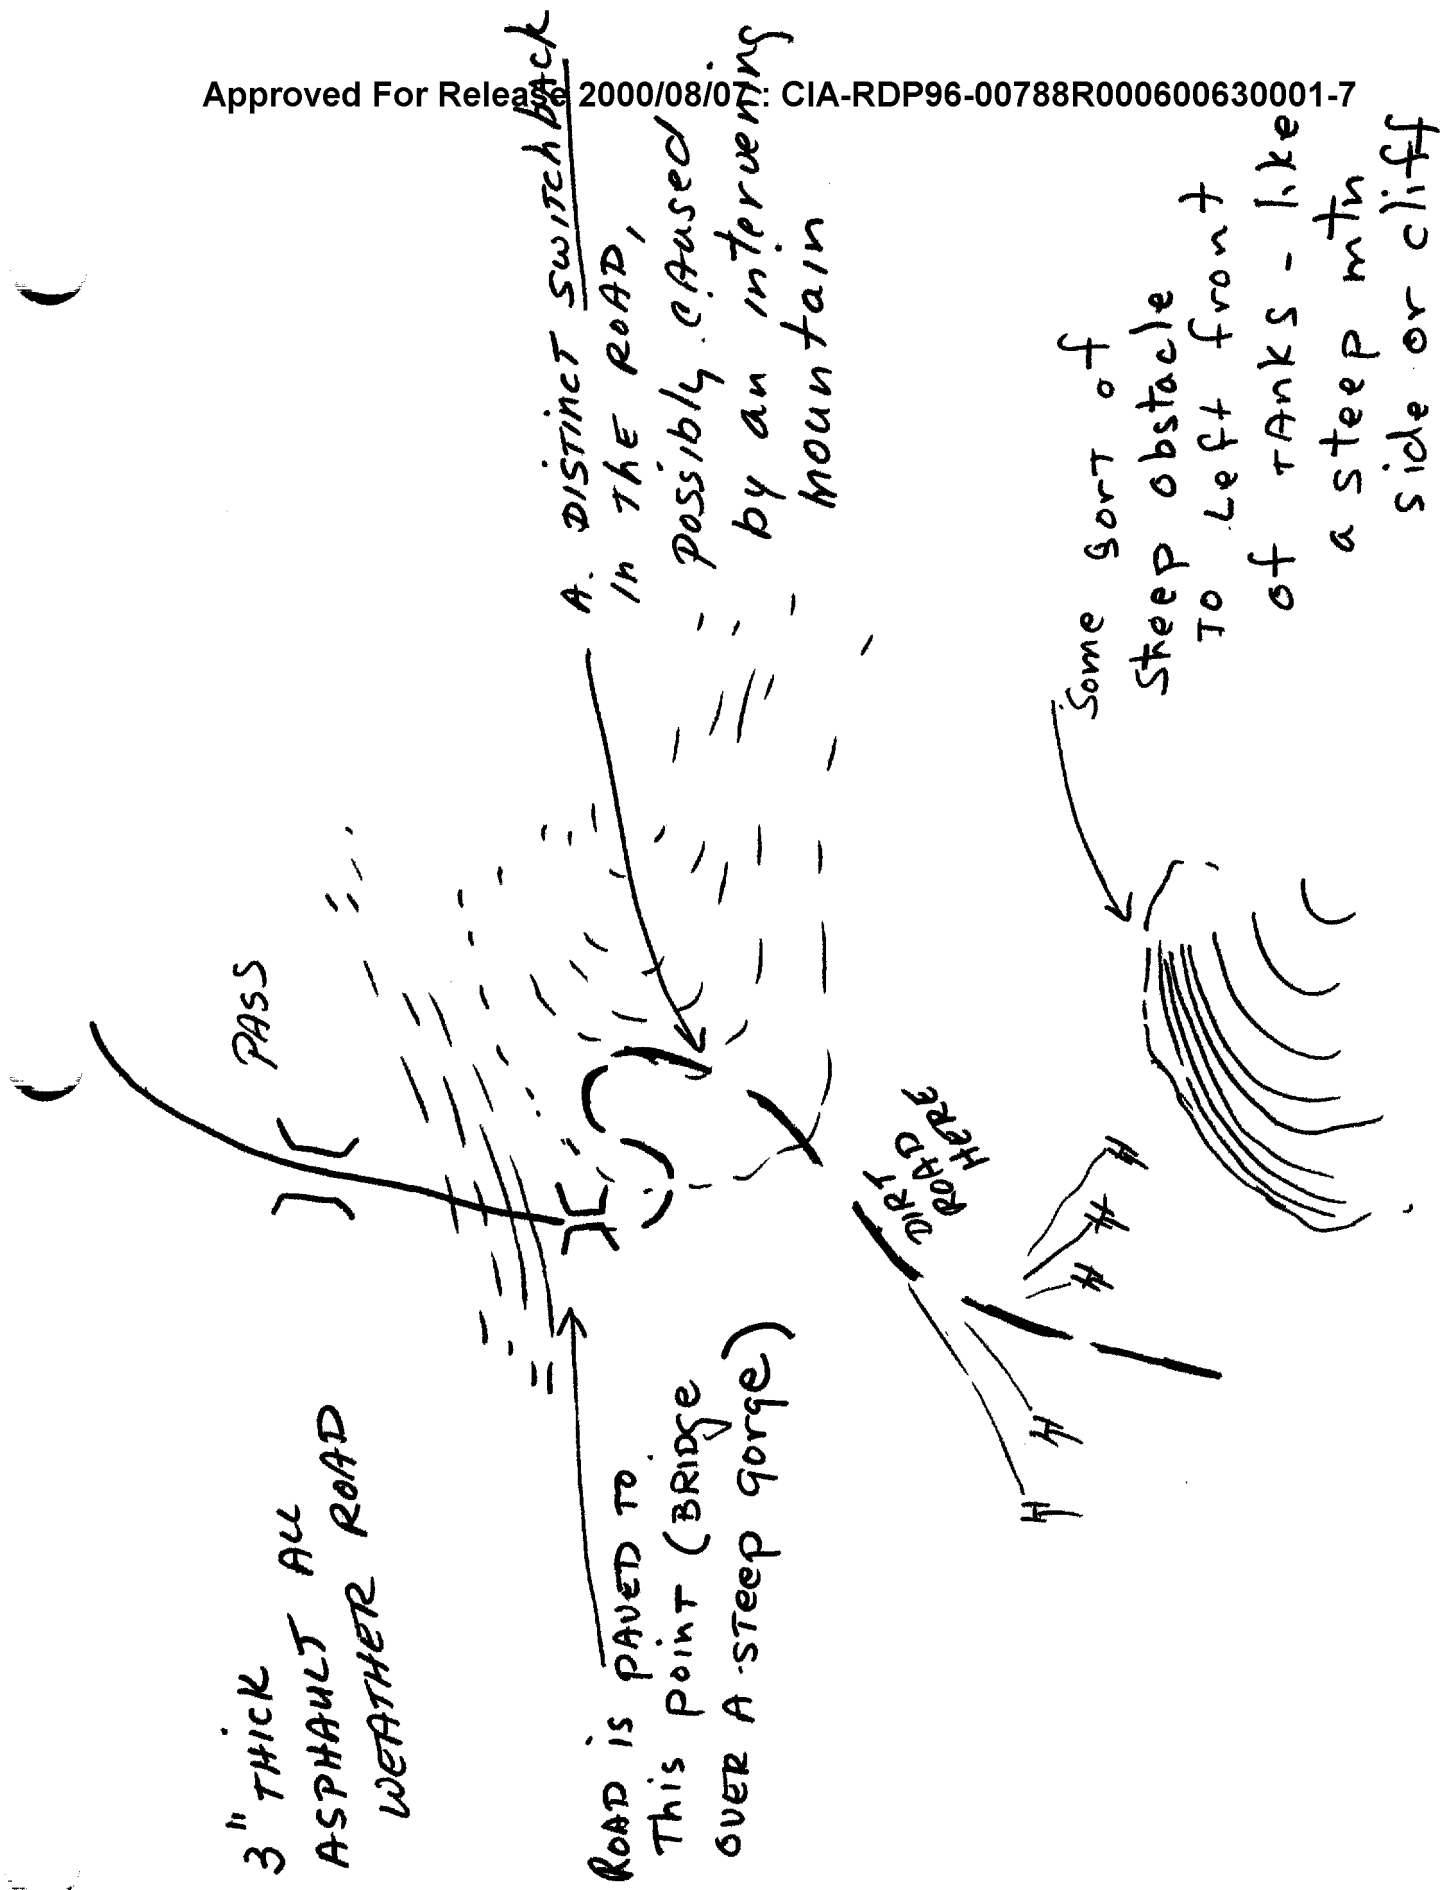 Approved For Release 2000/08/07 : CIA-RDP96-00788R000600630001-7
3" THICK
ASPHAULT ALL
WEATHER ROAD
PASS
ROAD is PAVED TO
This point (BRIDGE
OVER A STEEP gorge)
A. DISTINCT SWITCHback
in THE ROAD,
possibly CAused
by an intervening
mountain
DIRT
ROAD
HERE
Some sort of
Steep obstacle
To Left front
of TANKS - like
a steep mtn
side or cliff